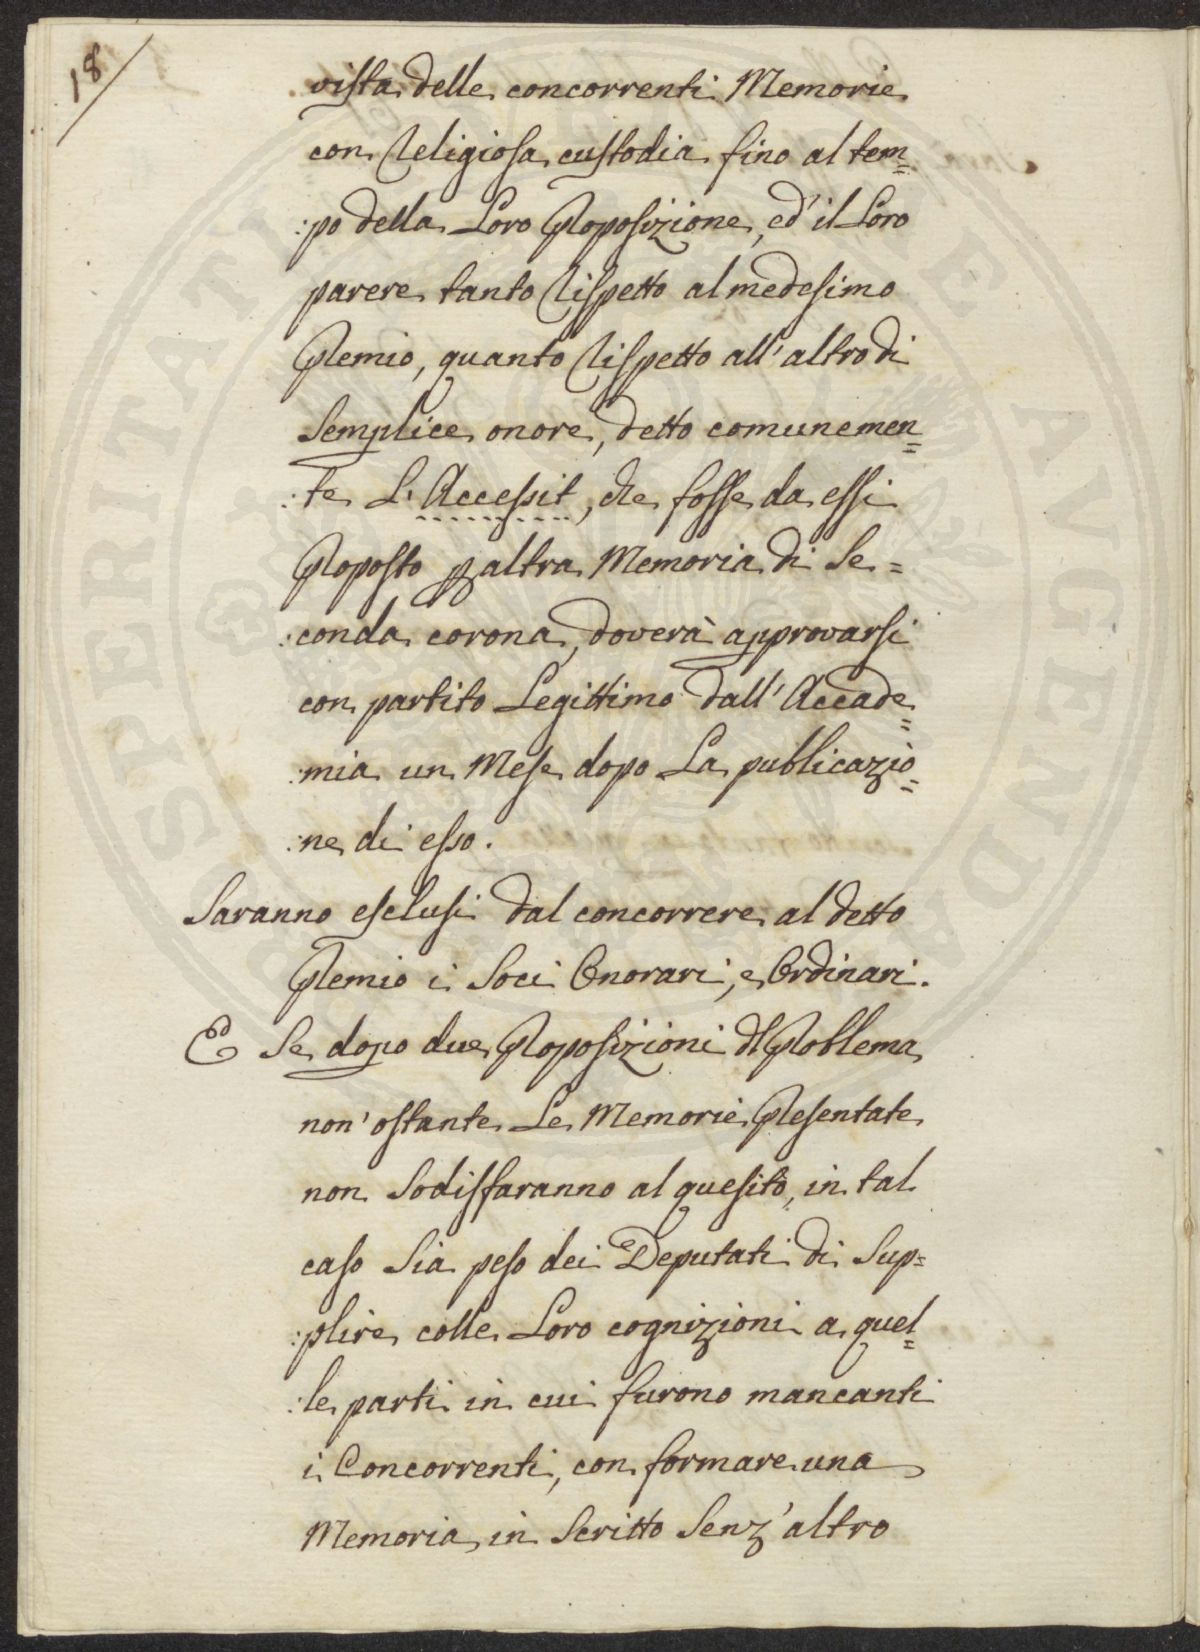 18
vista delle concorrenti Memorie
con Religiosa custodia fino al tem=
:po della Loro Proposizione, ed' il Loro
parere tanto Rispetto al medesimo
Premio, quanto Rispetto all' altro di
Semplice onore, detto comunemen=
:te L' Accessit, che fosse da essi
Proposto p altra Memoria di Se=
:conda corona, doverà approvarsi
con partito Legittimo dall' Accade=
:mia un Mese dopo La publicazio=
:ne di esso.
Saranno esclusi dal concorrere al detto
Premio i Soci Onorari, e Ordinari.
E Se dopo due Proposizioni dl Problema
non' ostante Le Memorie Presentate
non Sodisfaranno al quesito, in tal
caso Sia peso dei Deputati di Sup=
:plire colle Loro cognizioni a quel=
:le parti in cui furono mancanti
i Concorrenti, con formare una
Memoria in Scritto Senz' altro
PROSPERITATI PUBLICAE AUGENDAE